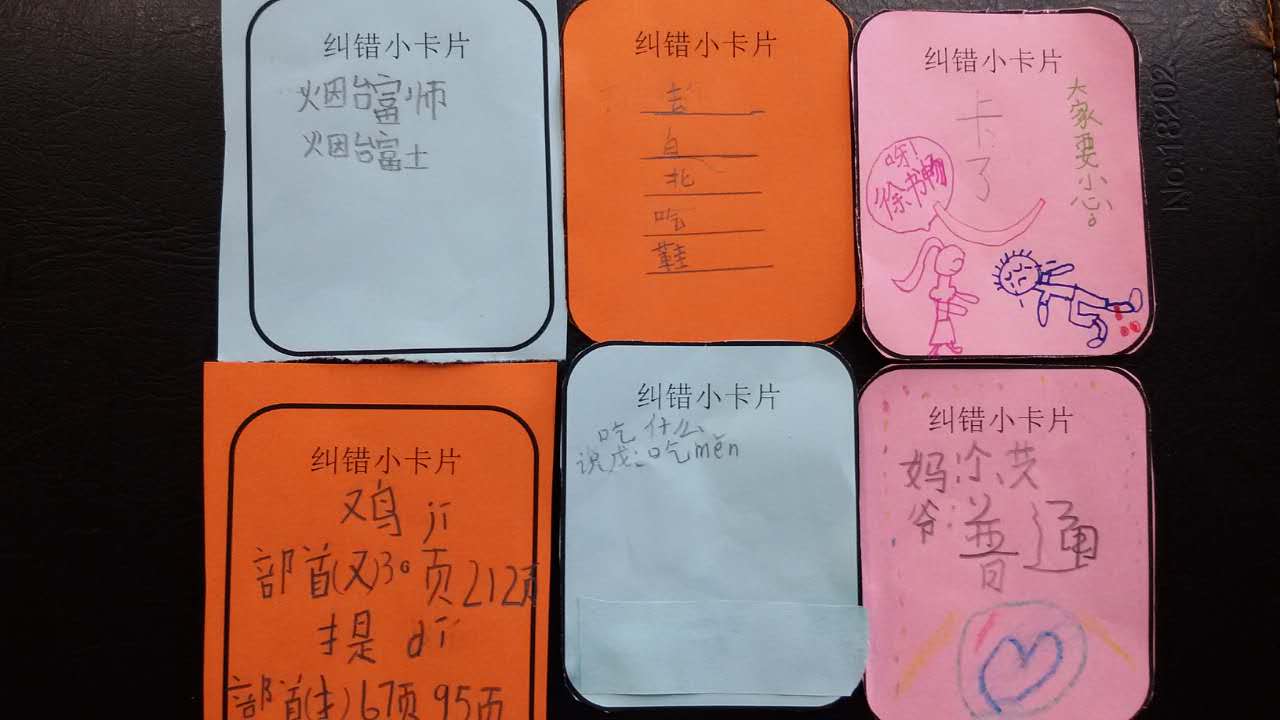 纠错小卡片
烟台富师
烟台富士
纠错小卡片
去
白
北
吃
鞋
纠错小卡片
卡了
大家要小心。
呀!
徐书畅
No:18202
纠错小卡片
鸡 jī
部首(又)30页212页
提 dī
部首(扌)67页95页
纠错小卡片
吃什么
说成:吃měn
纠错小卡片
妈
爷:普通